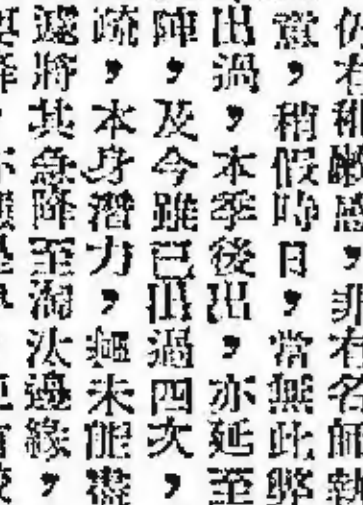 仍有稚嫩感，非有名師執
，稍假時日，當無此弊
出過，本季後出，亦延至
陣，及今雖已出過四次，
疏，本身潛力，未能盡
遂將其急降至淘汰邊緣，